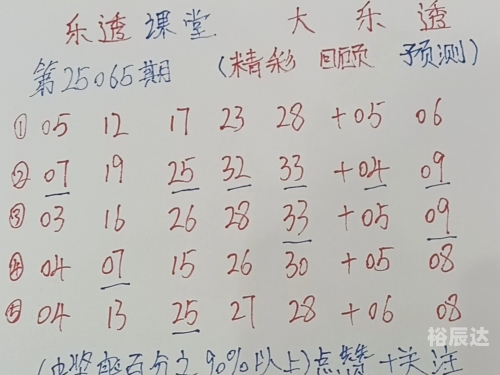 乐透课堂 大乐透
第25065期 (精彩回顾 预测)
① 05 12 17 23 28 +05 06
② 07 19 25 32 33 +04 09
③ 03 16 26 28 33 +05 09
④ 04 07 15 26 30 +05 08
⑤ 04 13 25 27 28 +06 08
(中奖率百分之90%以上)点赞十关注
裕辰达